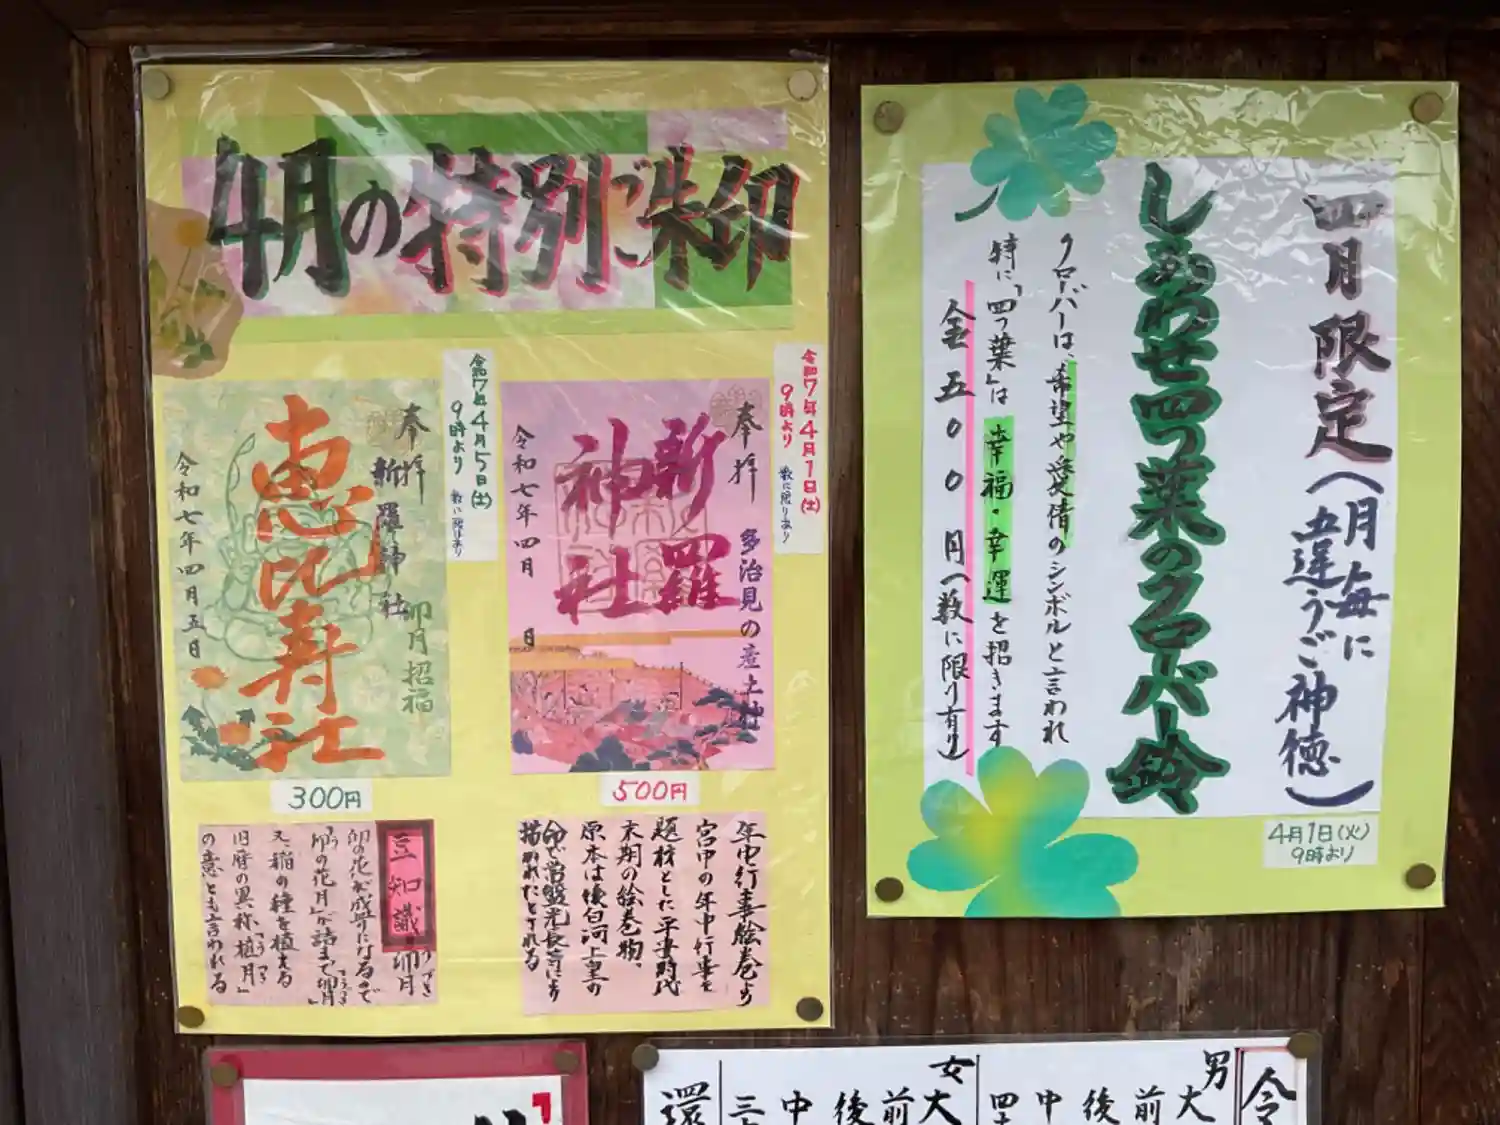 4月の特別ご朱印
令和7年4月1日(土)
9時より
数に限りあり
奉拝
多治見の産土神
新羅
神社
令和七年四月 日
500円
令和7年4月5日(土)
9時より
数に限りあり
奉拝
新羅神社
卯月招福
恵比寿社
令和七年四月五日
300円
年中行事絵巻より
宮中の年中行事を
題材とした平安時代
末期の絵巻物、
原本は後白河上皇の
命で常盤光長等により
描かれたとされる
豆知識
卯月
うづき
卯の花が盛りになるので
「卯の花月」が詰まって「卯月」
又稲の種を植える
旧暦の異称「植月」
の意とも言われる
四月限定(月毎に
違うご神徳)
しあわせ四つ葉のクローバー鈴
クローバーは、希望や愛情のシンボルと言われ
特に「四つ葉」は 幸福・幸運を招きます
金五〇〇円(数に限り有り)
4月1日(火)
9時より
令
男
大
前
後
中
四
女
大
前
後
中
三
還